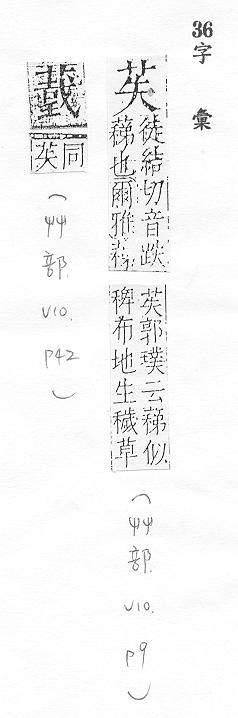 36 字彙
苵
徒結切音跌
蕛也爾雅蕛
苵郭璞云蕛似
稗布地生穢草
(艸部. V10. P9)
同
苵
(艸部. V10. P42)